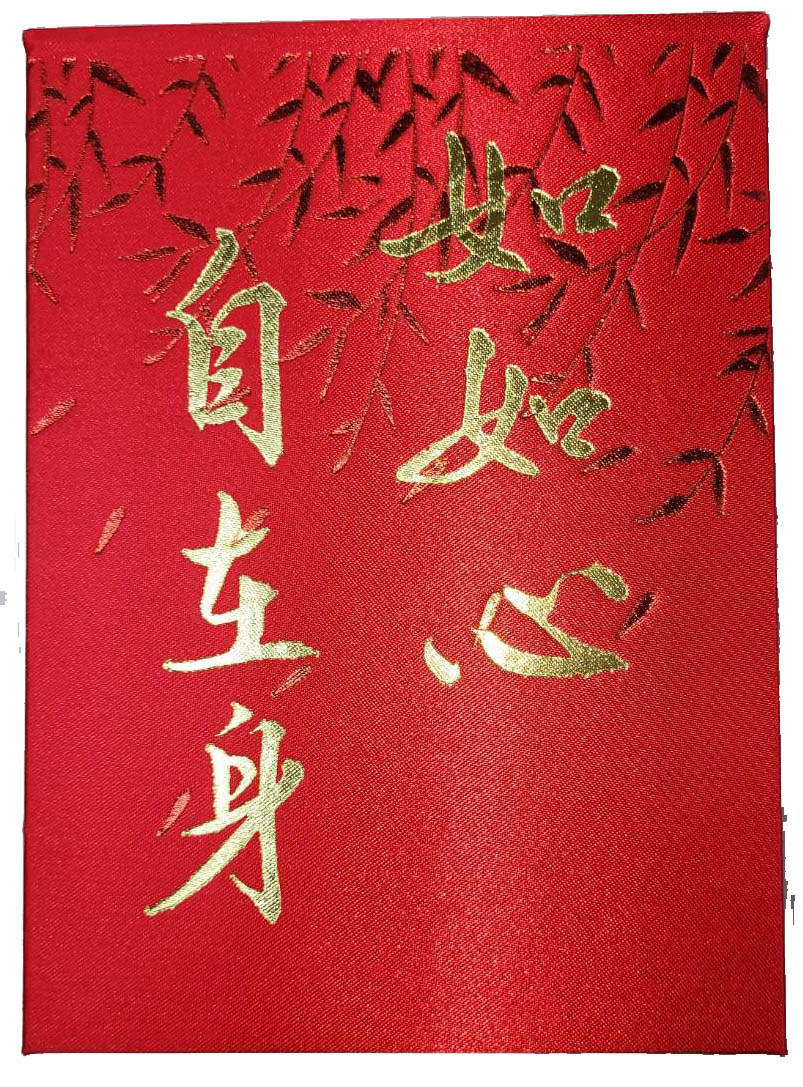 如如心
自在身